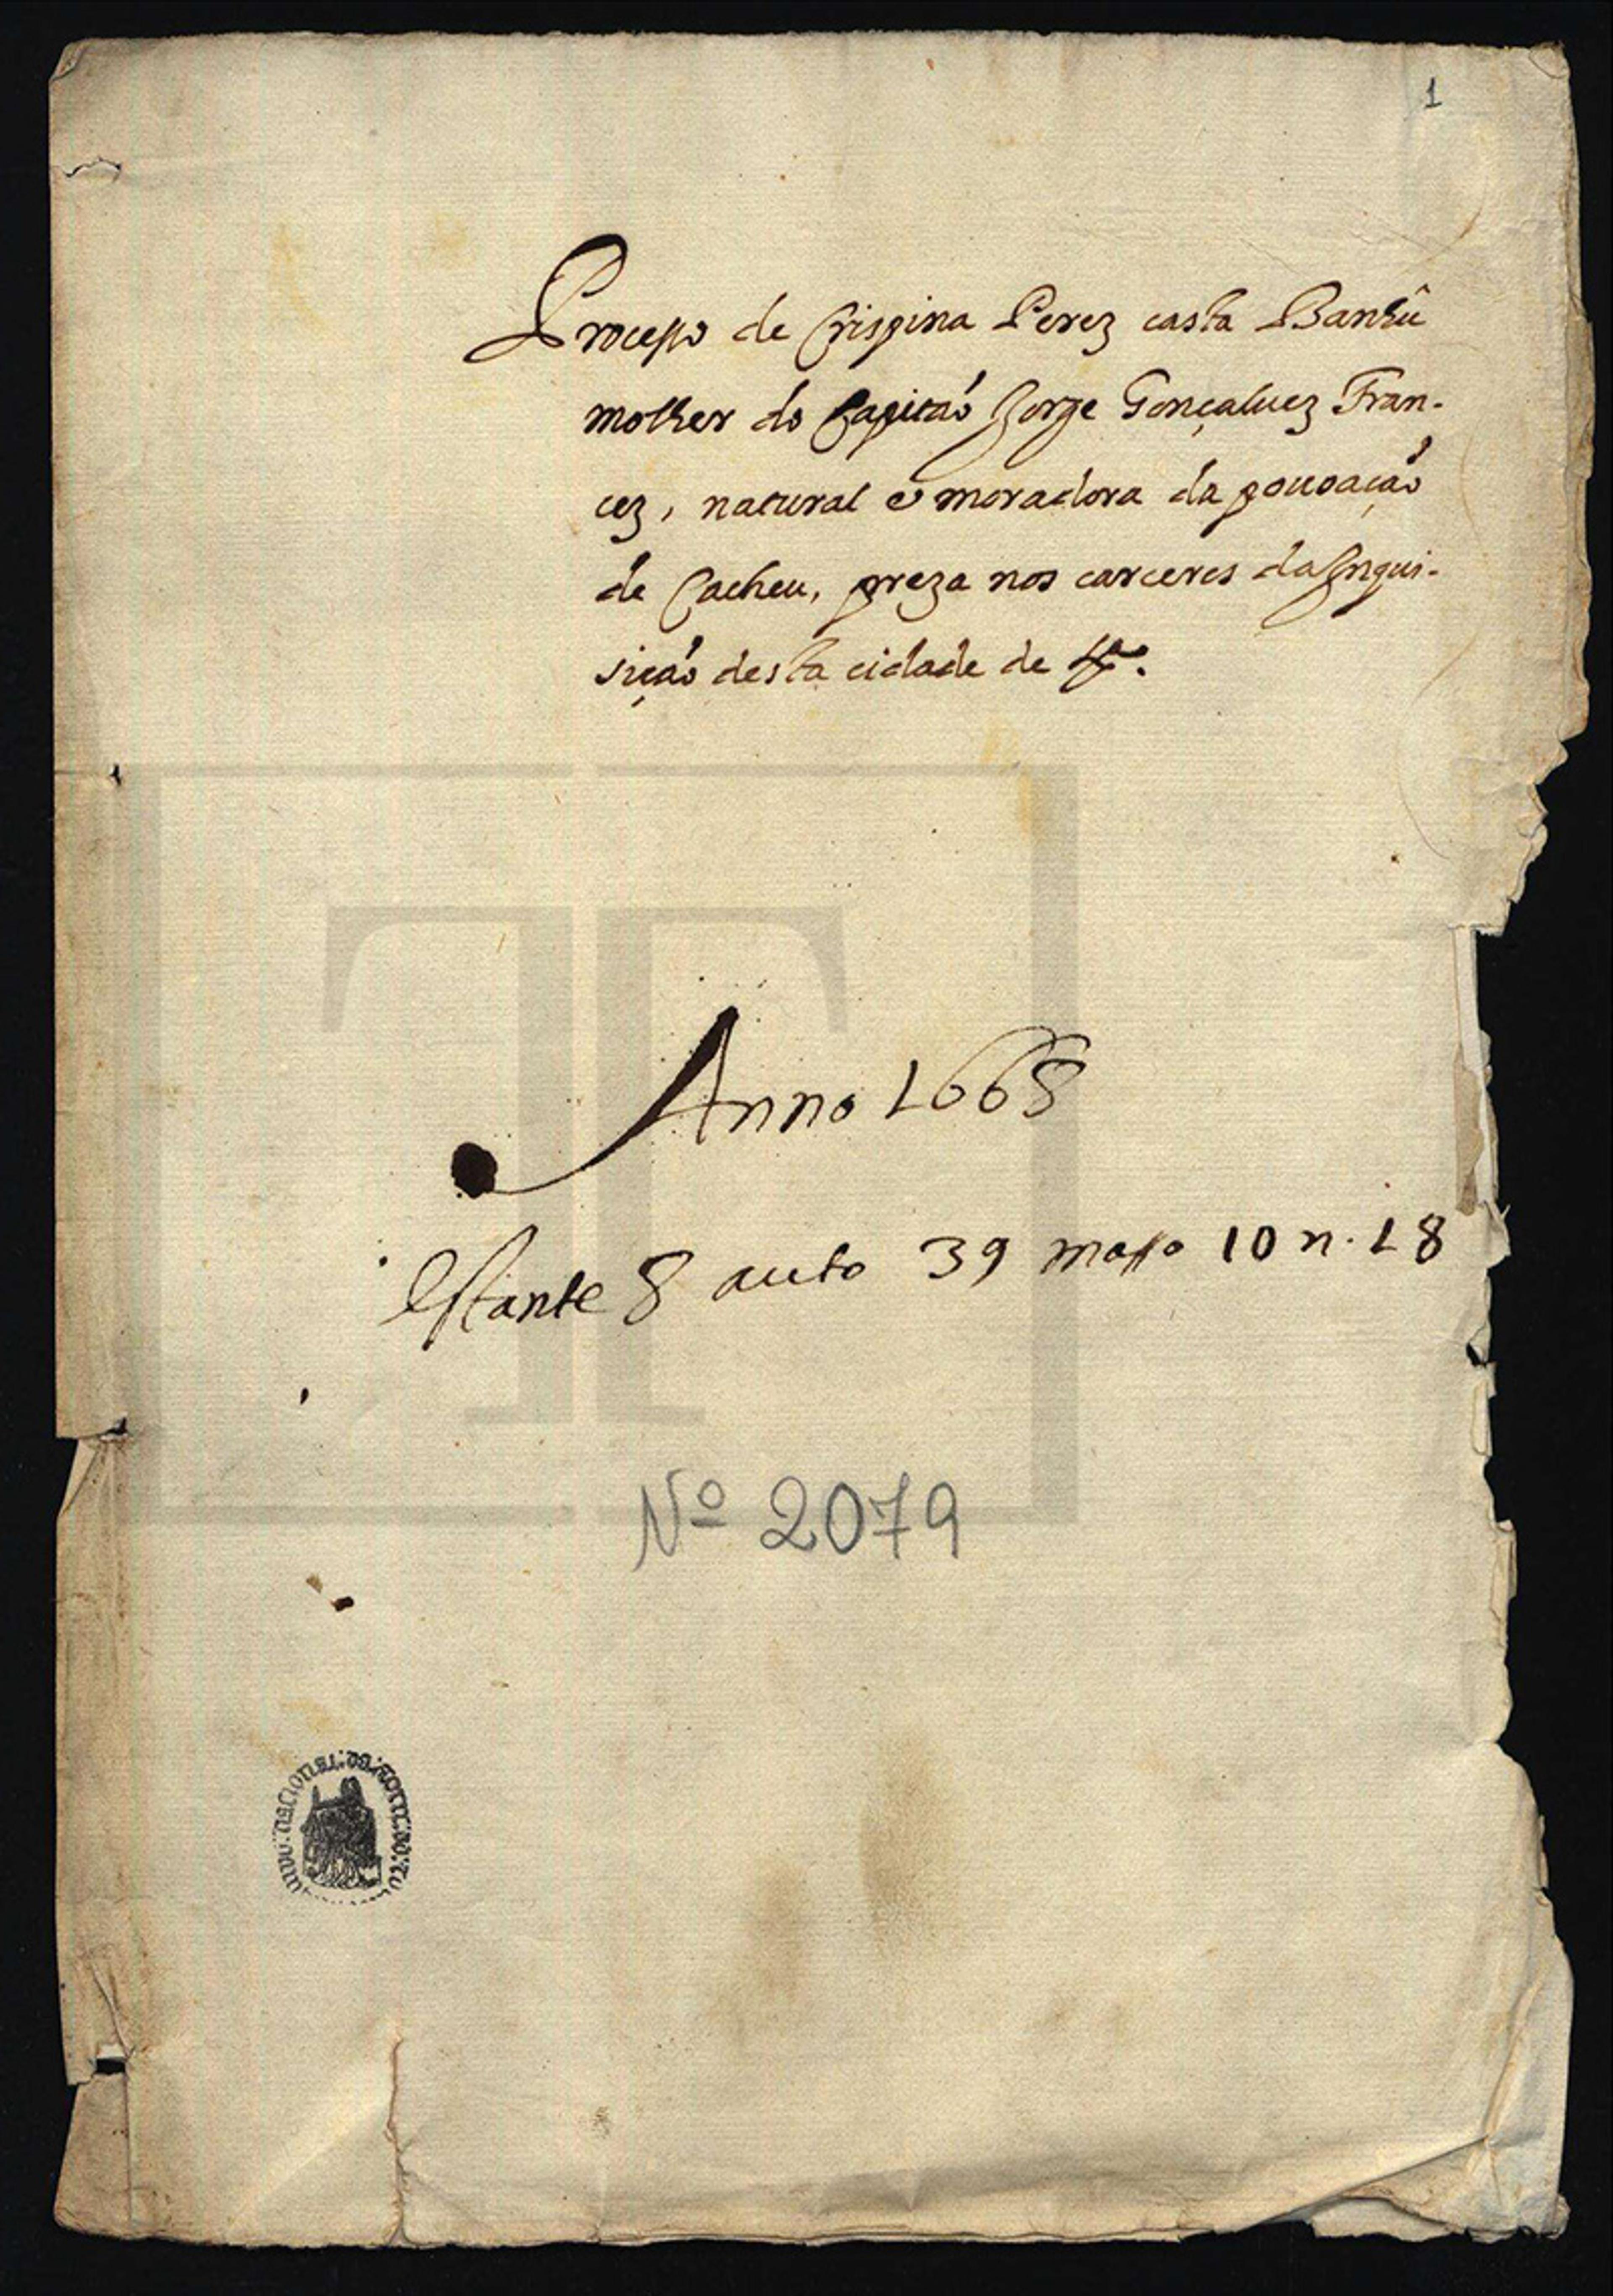 1
Processo de Crispina Perez casta Banhũ
molher do Capitaõ Jorge Gonçaluez Fran-
cez, natural e moradora da pouoaçaõ
de Cacheu, preza nos carceres da Inqui-
siçaõ desta cidade de Lxª.
Anno 1668
Estante 8 auto 39 masso 10 n. 18
Nº 2079
TT